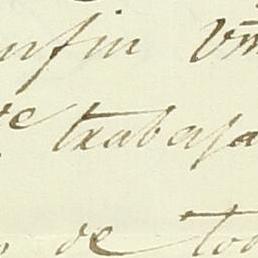 enfin Vm
e trabaja
de tod